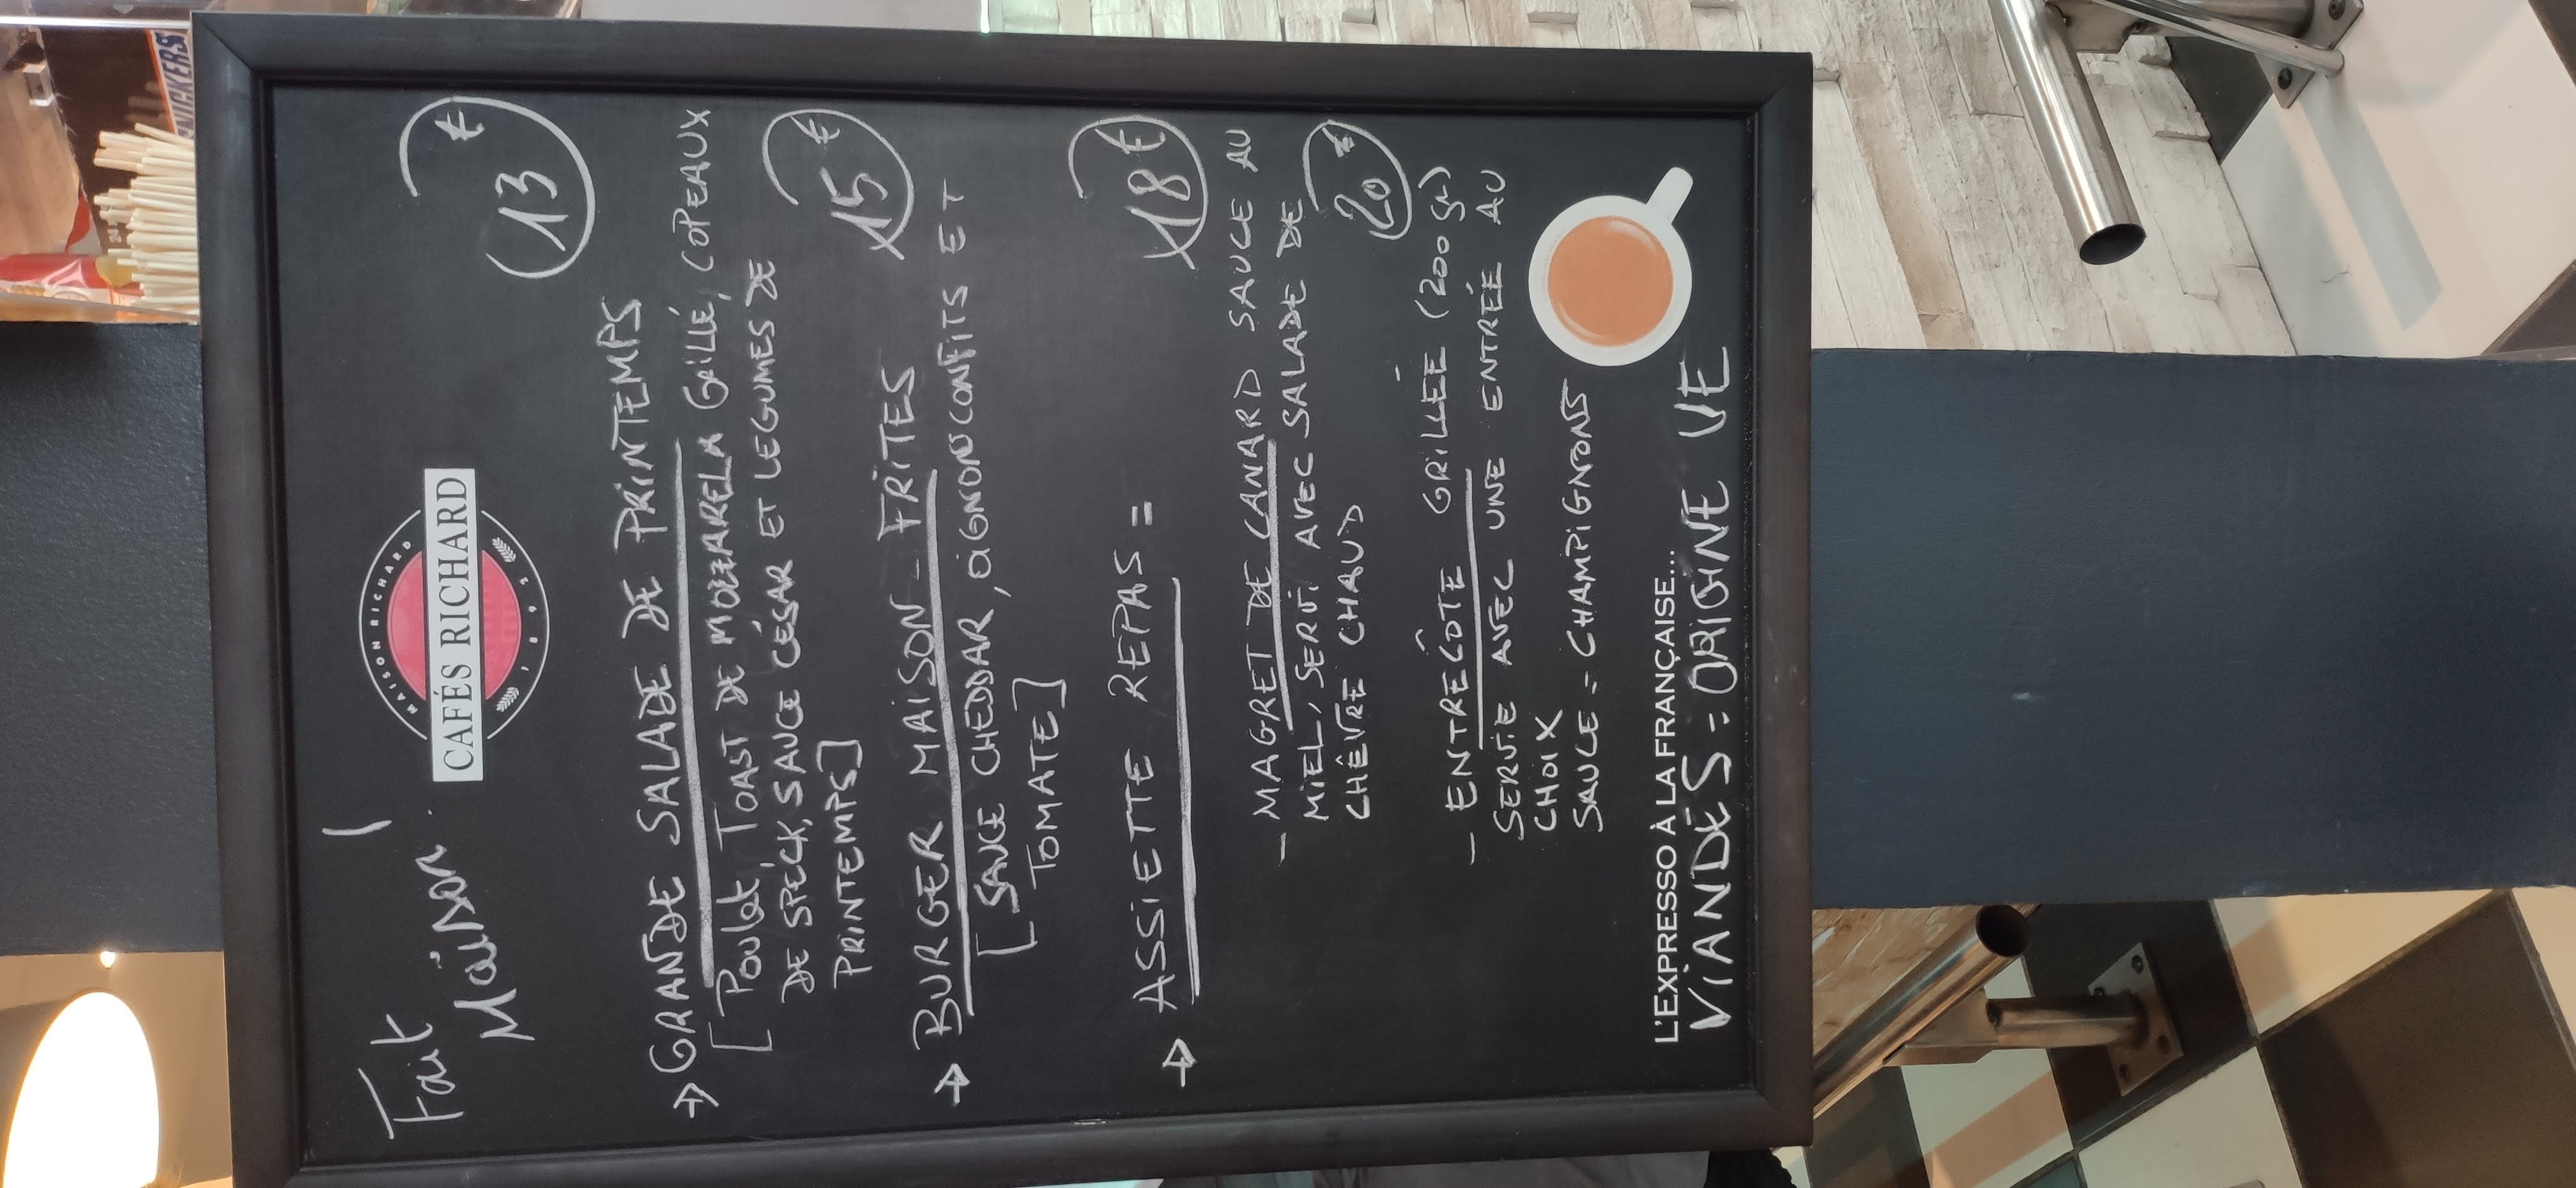 Fait
Maison !
MAISON RICHARD
CAFÉS RICHARD
1892
13 €
→ GRANDE SALADE DE PRINTEMPS
[ Poulet, TOAST DE MOZZARELA GRILLÉ, COPEAUX
DE SPECK, SAUCE CÉSAR ET LEGUMES DE
PRINTEMPS]
15 €
→ BURGER MAISON - FRITES
[ SAUCE CHEDDAR, OIGNONS CONFITS ET
TOMATE]
→ ASSIETTE REPAS =
18 €
- MAGRET DE CANARD SAUCE AU
MIEL, SERVI AVEC SALADE DE
CHÈVRE CHAUD
20 €
- ENTRECÔTE GRILLÉE (200 gr)
SERVIE AVEC UNE ENTRÉE AU
CHOIX
SAUCE = CHAMPIGNONS
L'EXPRESSO À LA FRANÇAISE...
VIANDES = ORIGINE UE
SNICKERS